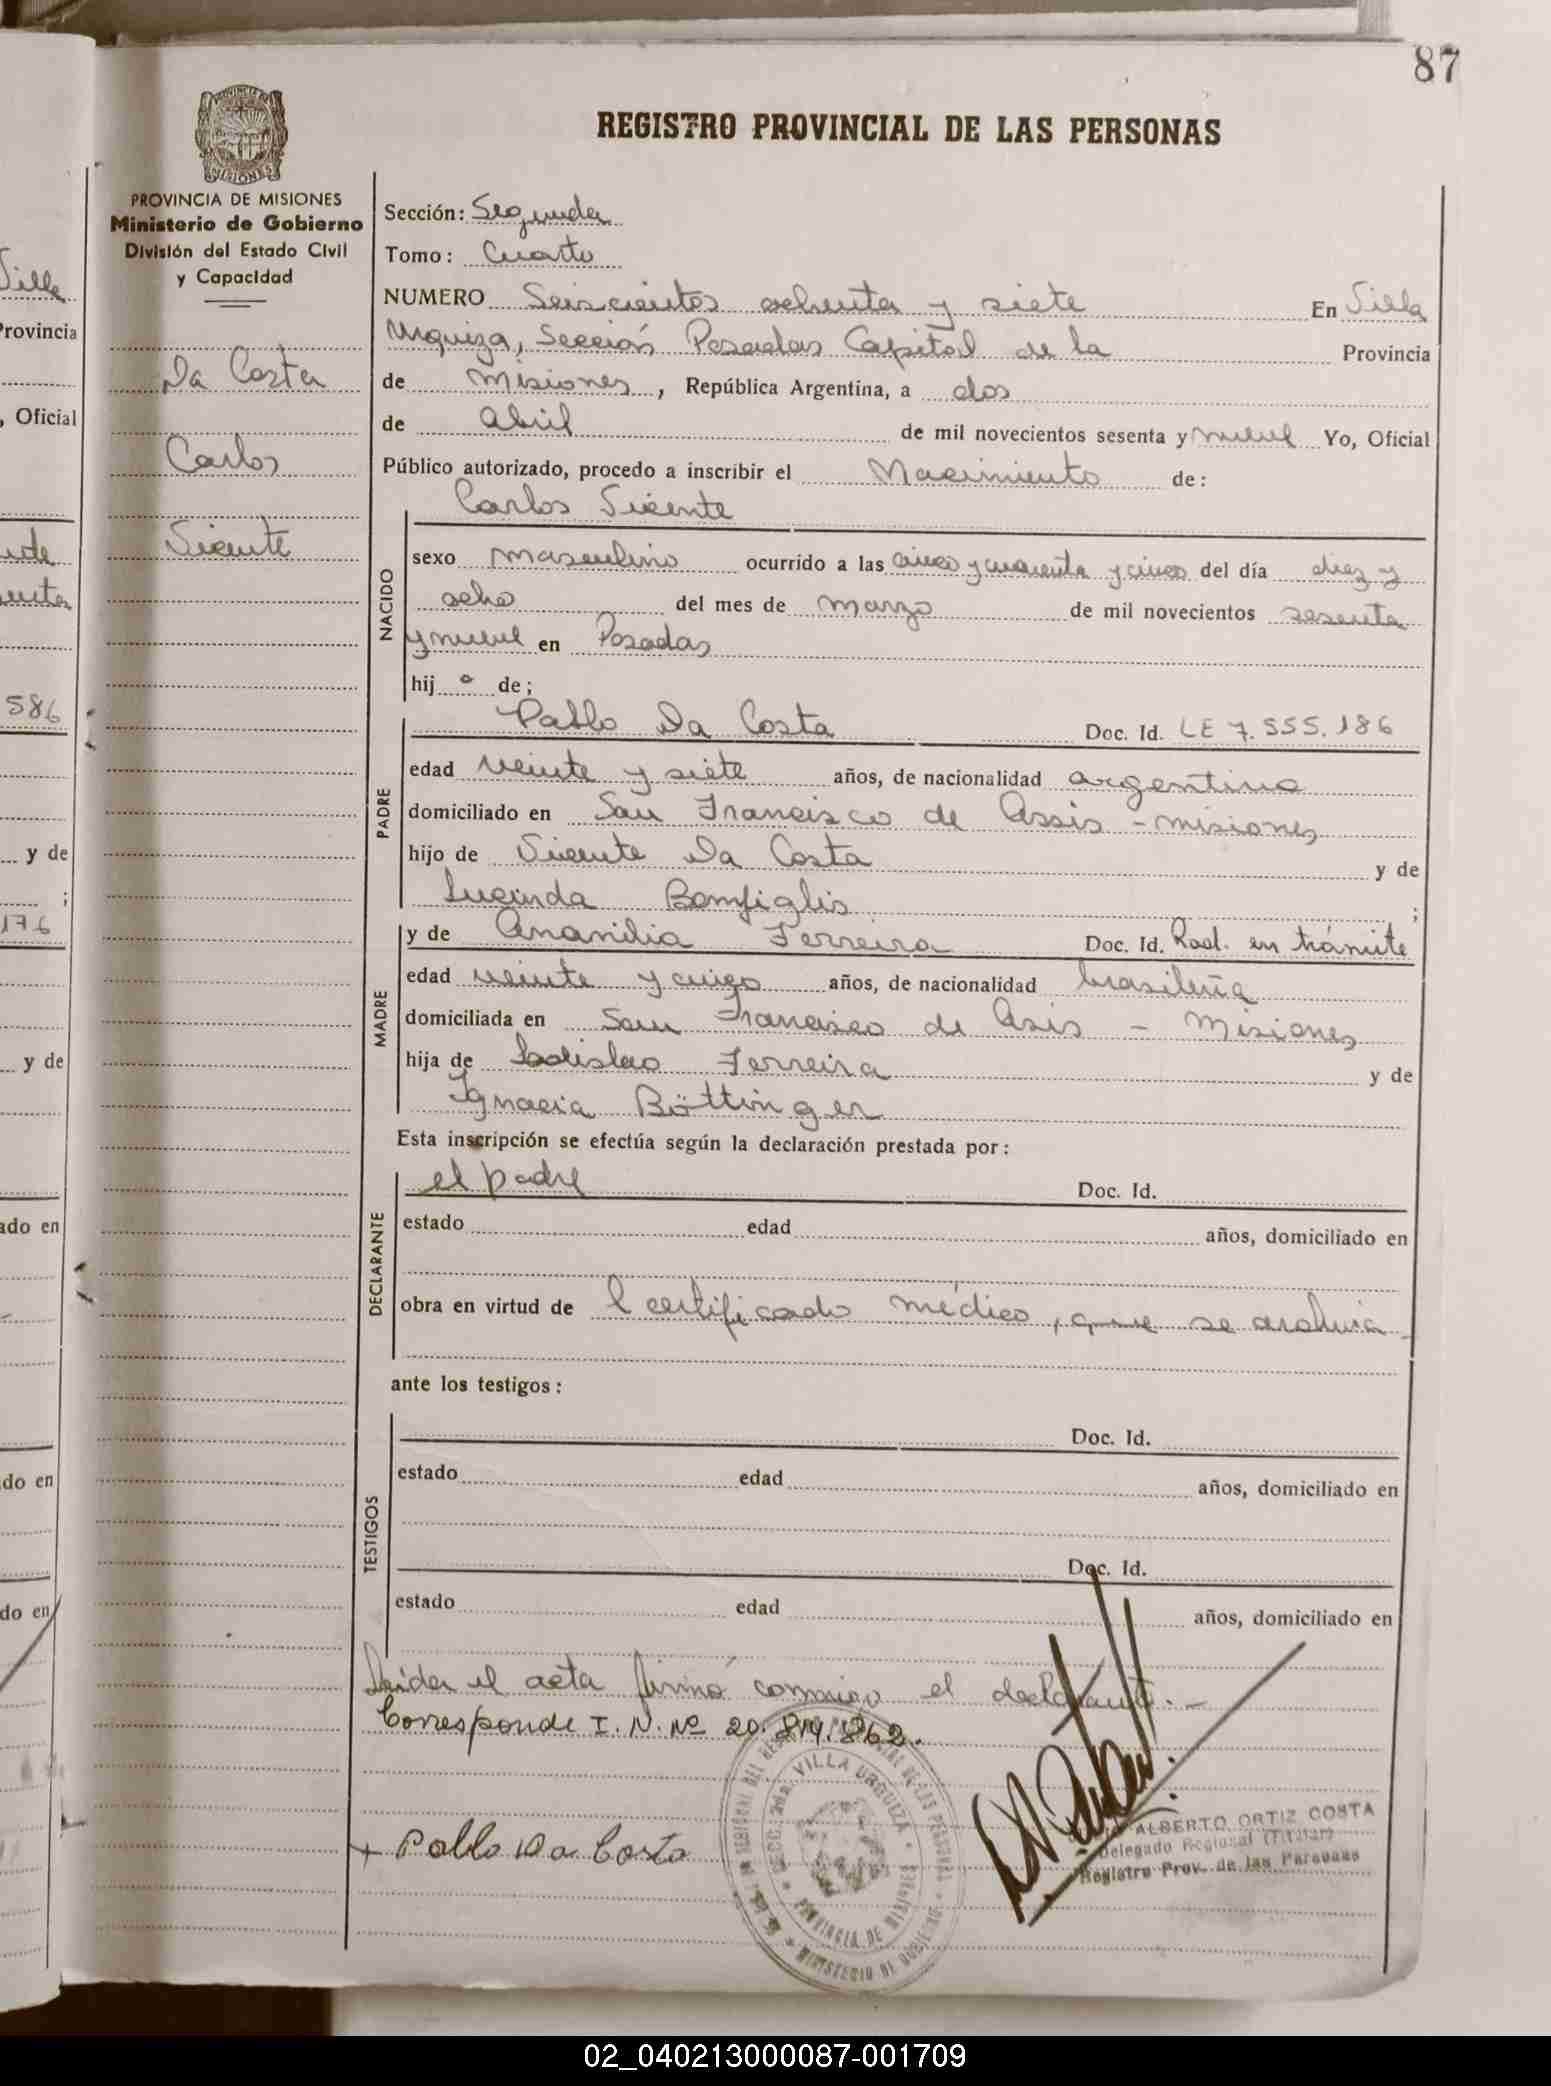 87
PROVINCIA DE MISIONES
Ministerio de Gobierno
División del Estado Civil
y Capacidad
Da Costa
Carlos
Vicente
REGISTRO PROVINCIAL DE LAS PERSONAS
Sección: Segunda
Tomo: Cuarto
NUMERO Seiscientos ochenta y siete En Villa
Urquiza, Sección Posadas Capital de la Provincia
de Misiones, República Argentina, a dos
de abril de mil novecientos sesenta y nueve Yo, Oficial
Público autorizado, procedo a inscribir el Nacimiento de:
Carlos Vicente
NACIDO
sexo masculino ocurrido a las cinco y cuarenta y cinco del día diez y
ocho del mes de marzo de mil novecientos sesenta
y nueve en Posadas
hij o de;
PADRE
Pablo Da Costa Doc. Id. LE 7.555.186
edad veinte y siete años, de nacionalidad argentina
domiciliado en San Francisco de Assis - misiones
hijo de Vicente Da Costa y de
Lucinda Bomfiglis ;
MADRE
y de Ananilia Ferreira Doc. Id. Rad. en trámite
edad veinte y cinco años, de nacionalidad brasileña
domiciliada en San Francisco de Asis - Misiones
hija de Ladislao Ferreira y de
Ignacia Böttinger
Esta inscripción se efectúa según la declaración prestada por:
DECLARANTE
el padre Doc. Id.
estado edad años, domiciliado en
obra en virtud de l certificado médico, que se archiva
ante los testigos:
TESTIGOS
Doc. Id.
estado edad años, domiciliado en
Doc. Id.
estado edad años, domiciliado en
Leída el acta firmó conmigo el declarante.-
Corresponde I. N. Nº 20.814.862.
+ Pablo Da Costa
SECC. 2da. VILLA URQUIZA
PROVINCIA DE MISIONES
MINISTERIO DE GOBIERNO
ALBERTO ORTIZ COSTA
Delegado Regional (Titular)
Registro Prov. de las Personas
Villa
Provincia
, Oficial
586
y de
;
176
y de
ado en
do en
do en
02_040213000087-001709